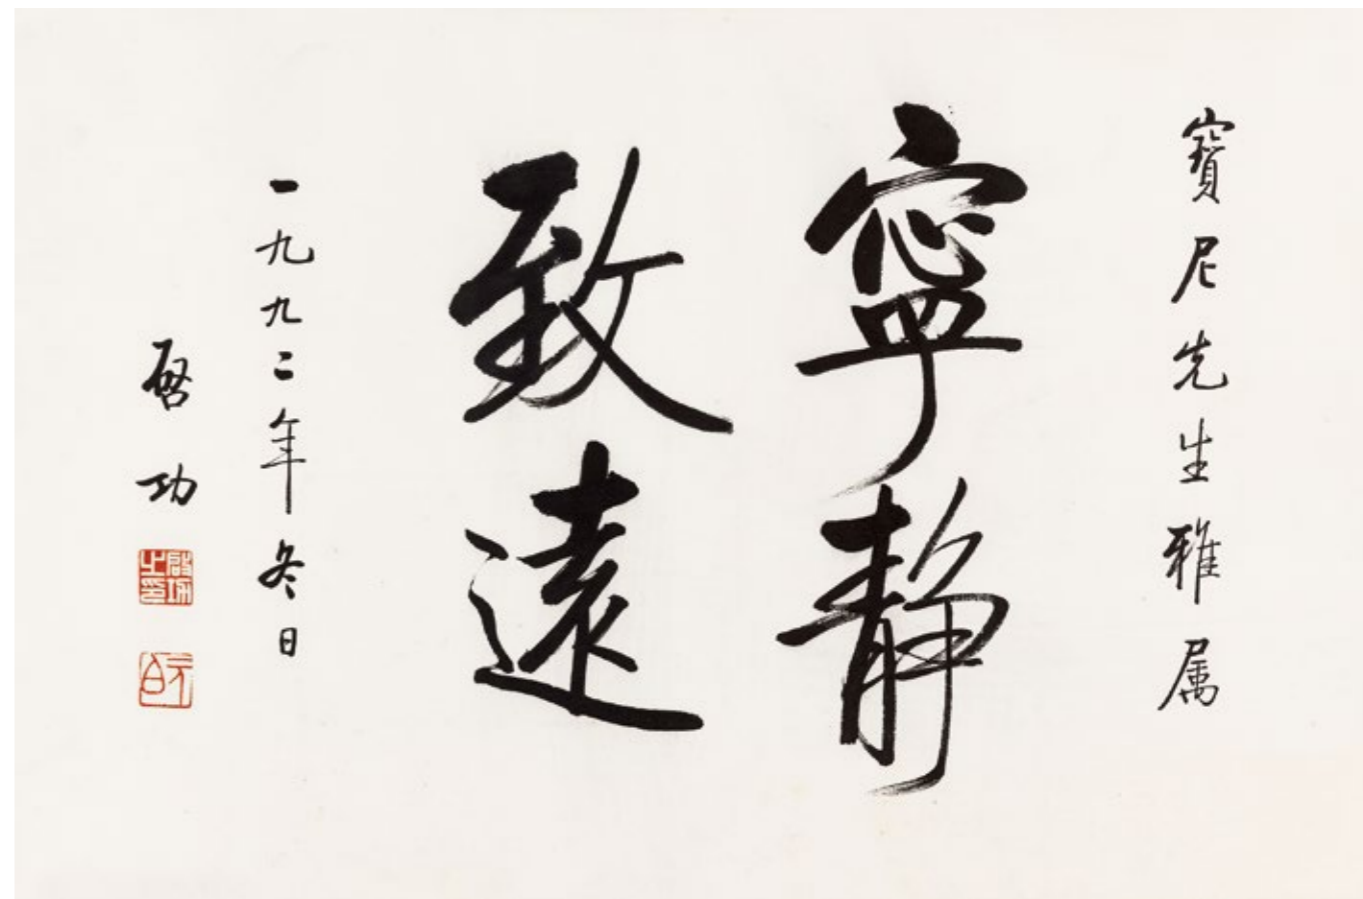 寶尼先生雅属
寧静
致遠
一九九二年冬日
啓功
啟功之印
元白